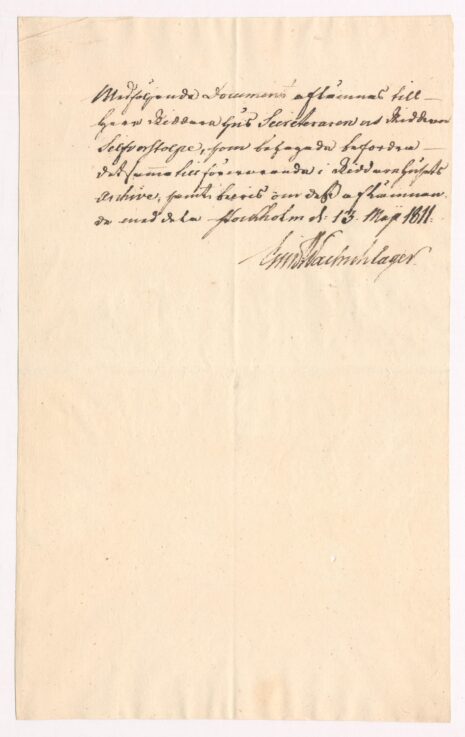 Medföljande Documents aflämnas till
Herr Riddarhus Secreteraren och Riddaren
Silfverstolpe, som behagade befordra
det samma till förvarande i Riddarhusets
Archive, samt bevis om dess aflämnan
de meddela. Stockholm d. 13 Maj 1811.
Wachschlager